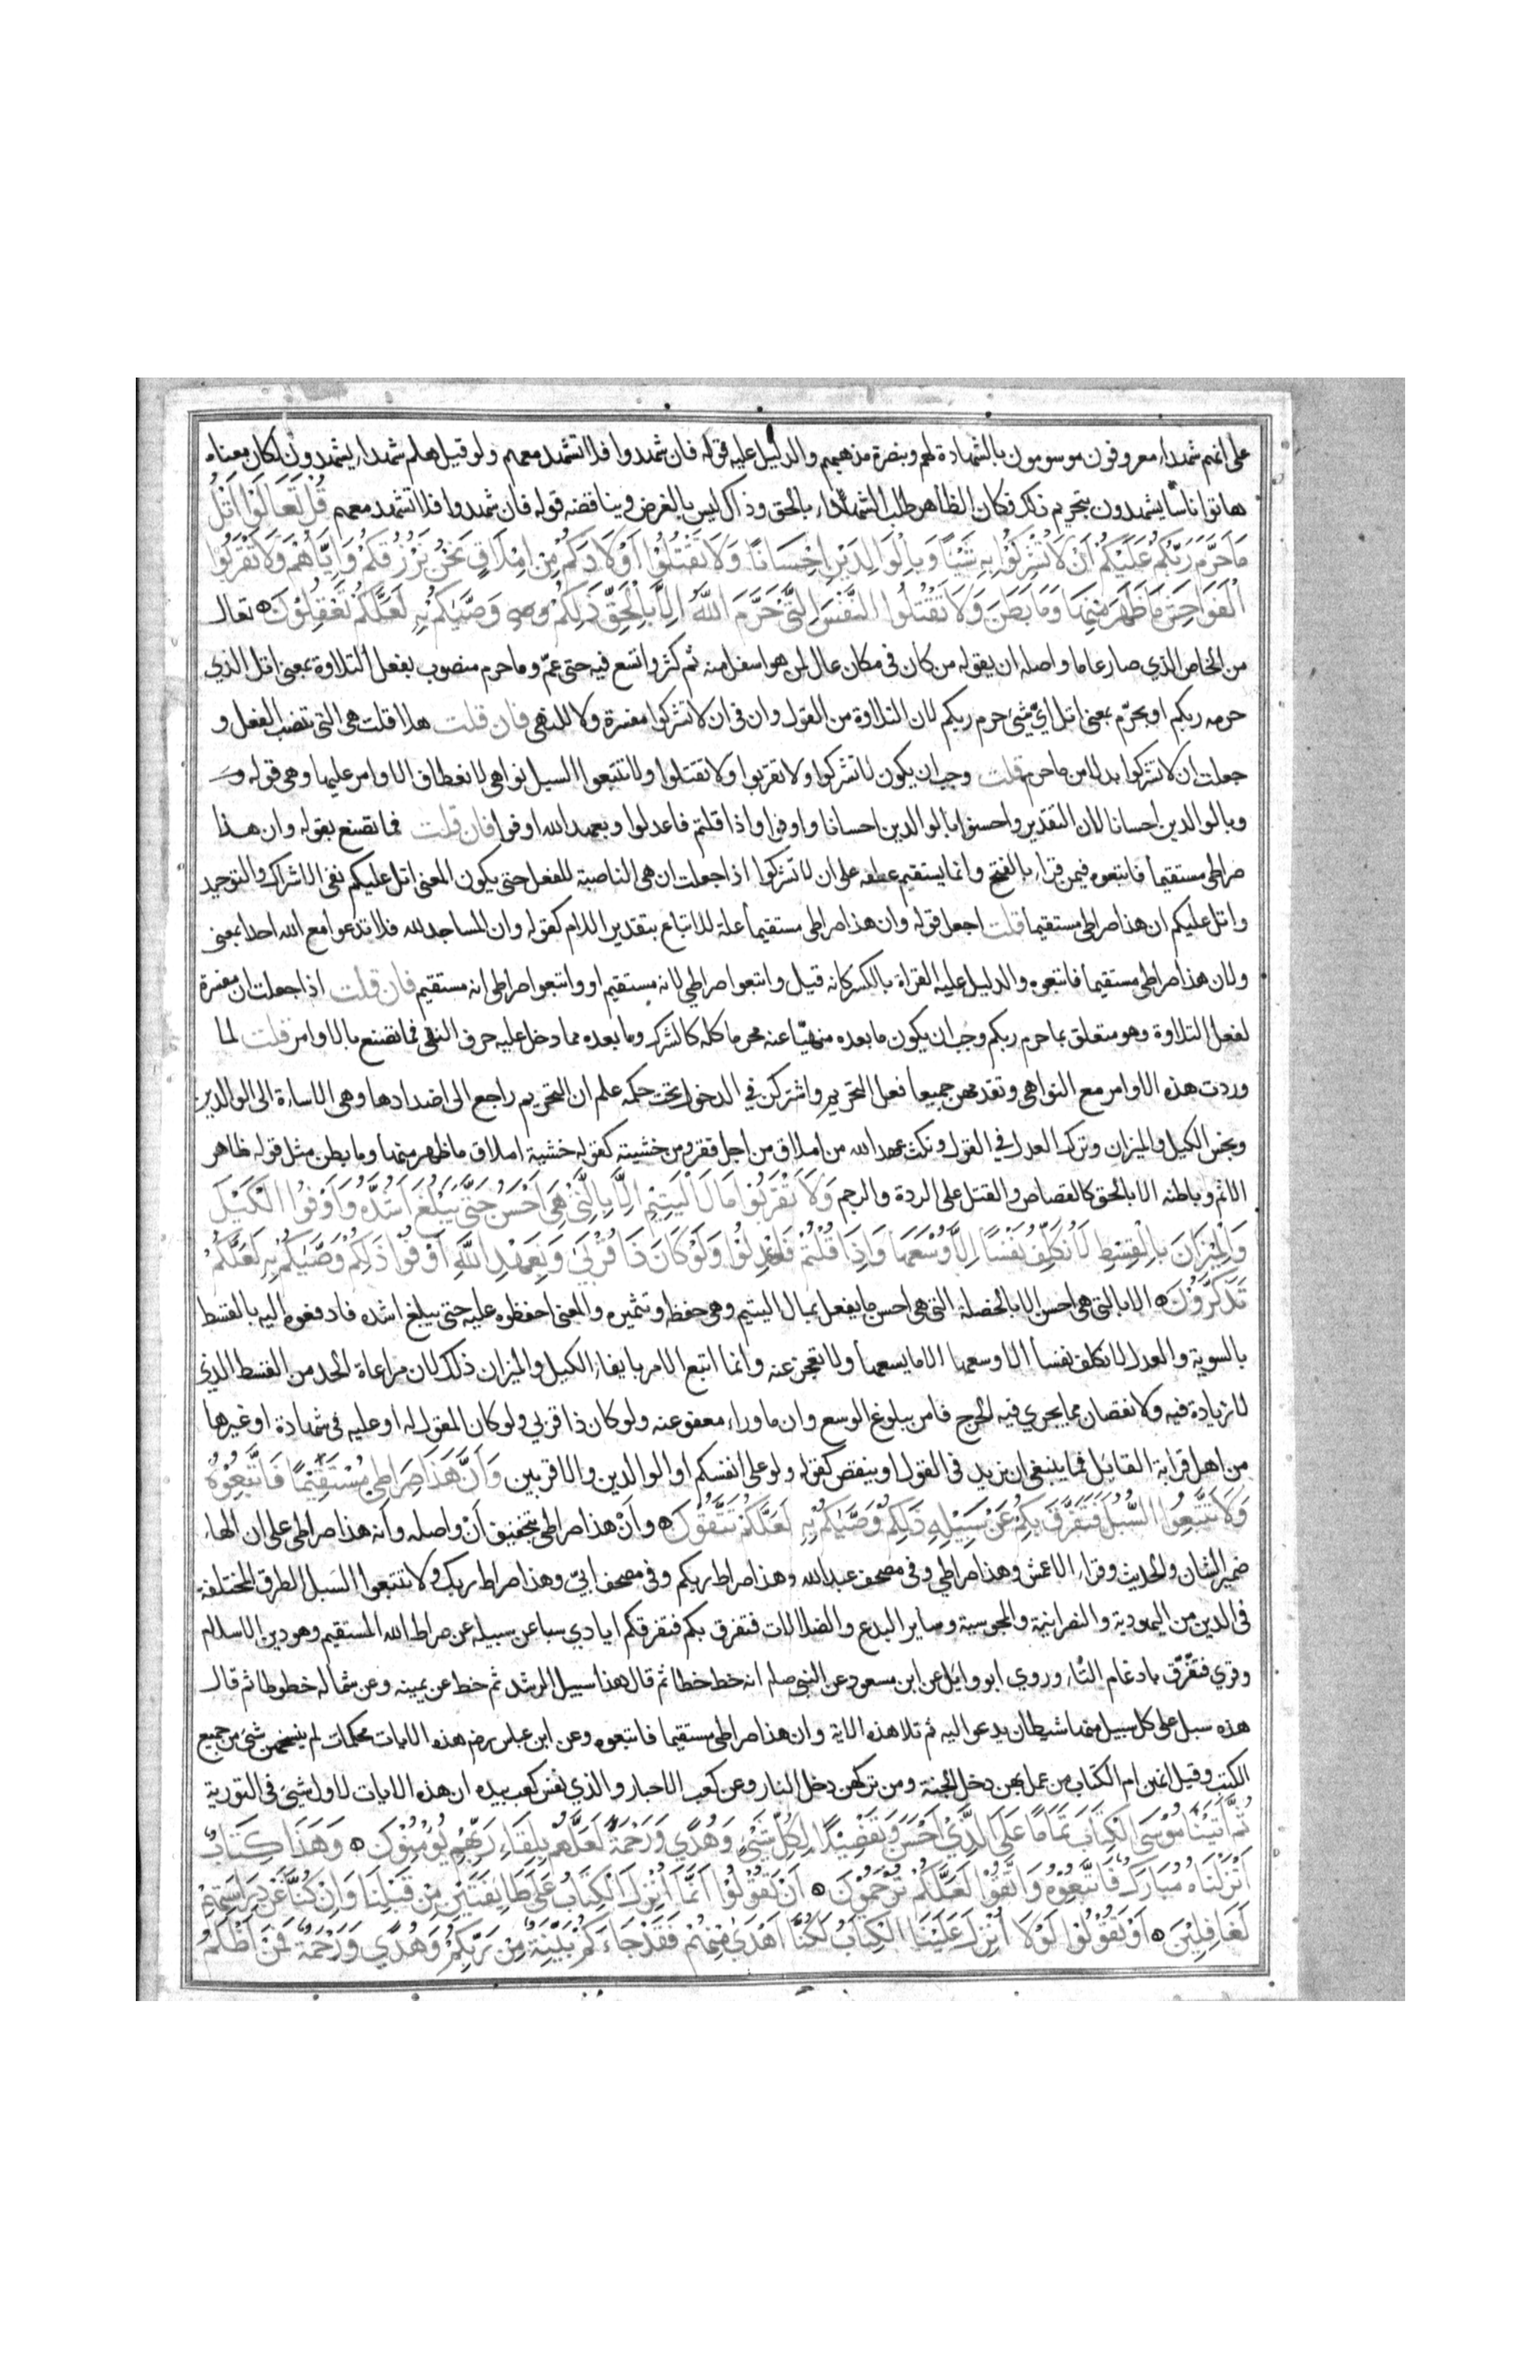 على انهم شهداء معروفون موسومون بالشهادة لهم وبنصرة مذهبهم والدليل عليه قوله فان شهدوا فلا تشهد معهم ولو قيل هلم شهداء يشهدون لكان معناه
هاتوا ناسا يشهدون بتحريم ذلك وكان الظاهر طلب الشهداء بالحق وذاك ليس بالغرض ويناقضه قوله فان شهدوا فلا تشهد معهم قُلْ تَعَالَوْا اَتْلُ
مَا حَرَّمَ رَبُّكُمْ عَلَيْكُمْ اَنْ لَا تُشْرِكُوْا بِهِ شَيْئًا وَبِالْوَالِدَيْنِ اِحْسَانًا وَلَا تَقْتُلُوْا اَوْلَادَكُمْ مِنْ اِمْلَاقٍ نَحْنُ نَرْزُقُكُمْ وَاِيَّاهُمْ وَلَا تَقْرَبُوا
الْفَوَاحِشَ مَا ظَهَرَ مِنْهَا وَمَا بَطَنَ وَلَا تَقْتُلُوا النَّفْسَ الَّتِيْ حَرَّمَ اللّٰهُ اِلَّا بِالْحَقِّ ذَلِكُمْ وَصّٰيكُمْ بِهِ لَعَلَّكُمْ تَعْقِلُوْنَ تعال
من الخاص الذي صار عاما واصله ان يقوله من كان في مكان عال لمن هو اسفل منه ثم كثر واتسع فيه حتى عمّ وما حرم منصوب بفعل التلاوة بمعنى اتل الذي
حرمه ربكم او بحرّم بمعنى اتل ايّ شيء حرم ربكم لان التلاوة من القول وان في ان لا تشركوا مفسرة ولا للنهي فان قلت هلا قلت هي التي تنصب الفعل و
جعلت ان لا تشركوا بدلا من ما حرم قلت وجب ان يكون لا تشركوا ولا تقربوا ولا تقتلوا ولا تتبعوا السبل نواهي لانعطاف الاوامر عليها وهي قوله و
وبالوالدين احسانا لان التقدير واحسنوا بالوالدين احسانا واوفوا واذا قلتم فاعدلوا وبعهد الله اوفوا فان قلت فما تصنع بقوله وان هذا
صراطي مستقيما فاتبعوه فيمن قراء بالفتح وانما يستقيم عطفه على ان لا تشركوا اذا جعلت ان هي الناصبة للفعل حتى يكون المعنى اتل عليكم نفي الاشراك والتوحيد
واتل عليكم ان هذا صراطي مستقيما قلت اجعل قوله وان هذا صراطي مستقيما علة للاتباع بتقدير اللام كقوله وان المساجد لله فلا تدعوا مع الله احدا بمعنى
ولان هذا صراطي مستقيما فاتبعوه والدليل عليه القراة بالكسر كانه قيل واتبعوا صراطي لانه مستقيم او واتبعوا صراطي انه مستقيم فان قلت اذا جعلت ان مفسرة
لفعل التلاوة وهو متعلق بما حرم ربكم وجب ان يكون ما بعده منهيّا عنه محرما كله كالشرك وما بعده مما دخل عليه حرف النهي فما تصنع بالاوامر قلت لما
وردت هذه الاوامر مع النواهي وتقدمهن جميعا فعل التحريم واشتركن في الدخول تحت حكمه علم ان التحريم راجع الى اضدادها وهي الاساءة الى الوالدين
وبخس الكيل والميزان وترك العدل في القول ونكث عهد الله من املاق من اجل فقر ومن خشيته كقوله خشية املاق ما ظهر منها وما بطن مثل قوله ظاهر
الاثم وباطنه الا بالحق كالقصاص والقتل على الردة والرجم وَلَا تَقْرَبُوْا مَالَ الْيَتِيْمِ اِلَّا بِالَّتِيْ هِيَ اَحْسَنُ حَتّٰى يَبْلُغَ اَشُدَّهُ وَاَوْفُوا الْكَيْلَ
وَالْمِيْزَانَ بِالْقِسْطِ لَا نُكَلِّفُ نَفْسًا اِلَّا وُسْعَهَا وَاِذَا قُلْتُمْ فَاعْدِلُوْا وَلَوْ كَانَ ذَا قُرْبٰى وَبِعَهْدِ اللّٰهِ اَوْفُوْا ذَلِكُمْ وَصّٰيكُمْ بِهِ لَعَلَّكُمْ
تَذَكَّرُوْنَ الا بالتي هي احسن الا بالخصلة التي هي احسن ما يفعل بمال اليتيم وهي حفظه وتثميره والمعنى احفظوه عليه حتى يبلغ اشده فادفعوه اليه بالقسط
بالسوية والعدل لا نكلف نفسا الا وسعها الا ما يسعها ولا تعجز عنه وانما اتبع الامر بايفاء الكيل والميزان ذلك لان مراعاة الحد من القسط الذي
لا زيادة فيه ولا نقصان مما يجري فيه الحرج فامر ببلوغ الوسع وان ما وراءه معفو عنه ولو كان ذا قربي ولو كان المقول له او عليه في شهادة او غيرها
من اهل قرابة القايل فما ينبغي ان يزيد في القول او ينقص كقوله ولو على انفسكم او الوالدين والاقربين وَاَنَّ هٰذَا صِرَاطِيْ مُسْتَقِيْمًا فَاتَّبِعُوْهُ
وَلَا تَتَّبِعُوا السُّبُلَ فَتَفَرَّقَ بِكُمْ عَنْ سَبِيْلِهِ ذَلِكُمْ وَصّٰيكُمْ بِهِ لَعَلَّكُمْ تَتَّقُوْنَ وأنْ هذا صراطي بتخفيف أنْ واصله وأنه هذا صراطي على ان الهاء
ضمير الشان والحديث وقراء الاعمش وهذا صراطي وفي مصحف عبد الله وهذا صراط ربكم وفي مصحف ابيّ وهذا صراط ربك ولا تتبعوا السبل الطرق المختلفة
في الدين من اليهودية والنصرانية والمجوسية وساير البدع والضلالات فتفرق بكم فتفرقكم ايادي سبا عن سبيله عن صراط الله المستقيم وهو دين الاسلام
وقري فتفّرّق بادغام التاء وروي ابو وايل عن ابن مسعود عن النبي صلم انه خط خطا ثم قال هذا سبيل الرشد ثم خط عن يمينه وعن شماله خطوطا ثم قال
هذه سبل على كل سبيل منها شيطان يدعو اليه ثم تلا هذه الاية وان هذا صراطي مستقيما فاتبعوه وعن ابن عباس رضه هذه الايات محكمات لم ينسخهن شئ من جميع
الكتب وقيل انهن ام الكتاب من عمل بهن دخل الجنة ومن تركهن دخل النار وعن كعب الاحبار والذي نفس كعب بيده ان هذه الايات لاول شئ في التورية
ثُمَّ اٰتَيْنَا مُوْسَى الْكِتَابَ تَمَامًا عَلَى الَّذِيْ اَحْسَنَ وَتَفْصِيْلًا لِكُلِّ شَيْءٍ وَهُدًي وَرَحْمَةً لَعَلَّهُمْ بِلِقَاءِ رَبِّهِمْ يُؤْمِنُوْنَ وَهٰذَا كِتَابٌ
اَنْزَلْنَاهُ مُبَارَكٌ فَاتَّبِعُوْهُ وَاتَّقُوْا لَعَلَّكُمْ تُرْحَمُوْنَ اَنْ تَقُوْلُوْا اِنَّمَا اُنْزِلَ الْكِتَابُ عَلٰى طَايِفَتَيْنِ مِنْ قَبْلِنَا وَاِنْ كُنَّا عَنْ دِرَاسَتِهِمْ
لَغَافِلِيْنَ اَوْ تَقُوْلُوْا لَوْ اَنَّا اُنْزِلَ عَلَيْنَا الْكِتَابُ لَكُنَّا اَهْدٰى مِنْهُمْ فَقَدْ جَاءَكُمْ بَيِّنَةٌ مِنْ رَبِّكُمْ وَهُدًي وَرَحْمَةٌ فَمَنْ اَظْلَمُ